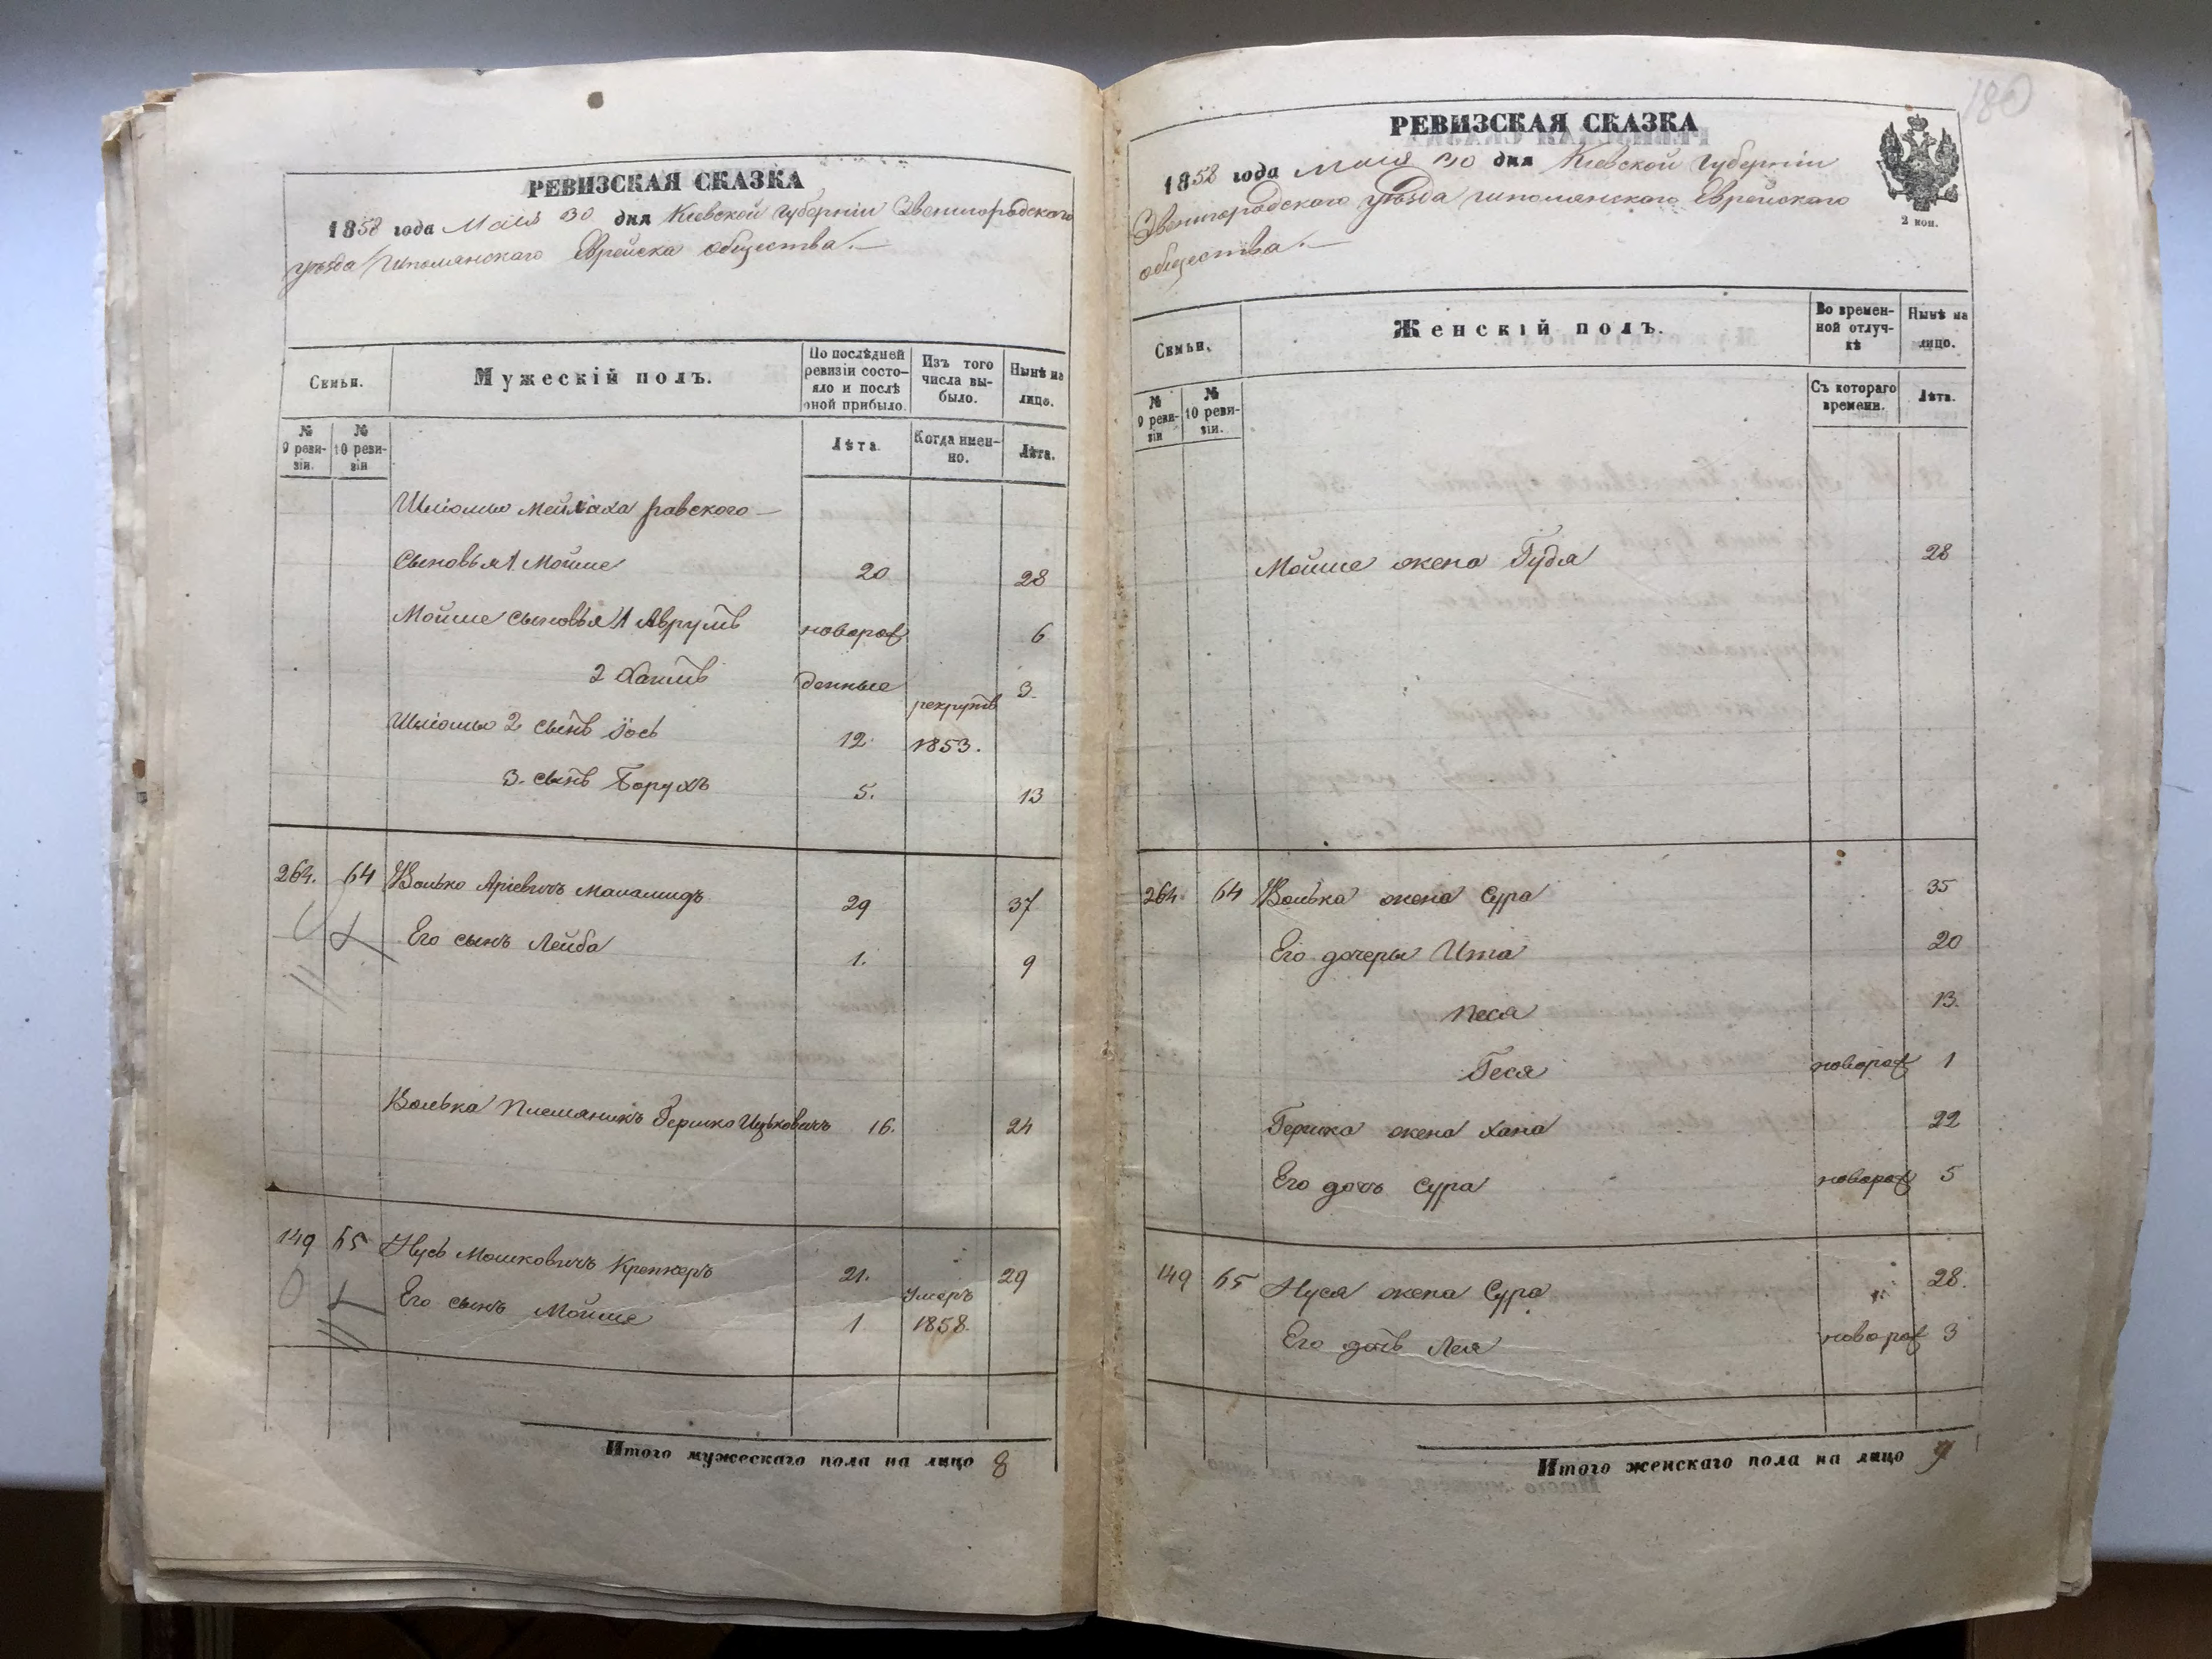 РЕВИЗСКАЯ СКАЗКА
1858 года Мая 30 дня Кіевской Губерніи Звенигородского
уѣзда Шполянскаго Еврейска общества.
Семьи.
Мужескій полъ.
По послѣдней ревизіи состояло и послѣ оной прибыло.
Изъ того числа выбыло.
Нынѣ на лицо.
№ 9 ревизіи.
№ 10 ревизіи
Лѣта.
Когда именно.
Лѣта.
Шліомы Мейлаха Равского
Сыновья 1 Мойше 20 28
Мойше сыновья 1 Аврумъ новорож 6
2 Хаимъ денные 3.
рекрутъ
Шліомы 2 сынъ Іось 12 1853.
3. сынъ Борухъ 5. 13
264. 64 Волько Аріевичъ Маламидъ 29 37
Его сынъ Лейба 1. 9
Волька Племяникъ Гершко Ицьковичъ 16. 24
149 65 Нусь Мошковичъ Крепкеръ 21. 29
умеръ
Его сынъ Мойше 1 1858.
Итого мужескаго пола на лицо 8
180
РЕВИЗСКАЯ СКАЗКА
1858 года Мая 30 дня Кіевской Губерніи
Звенигородского уѣзда Шполянского Еврейского
общества.
2 коп.
Семьи.
Женскій полъ.
Во временной отлучкѣ
Нынѣ на лицо.
№ 9 ревизіи
№ 10 ревизіи.
Съ котораго времени.
Лѣта.
Мойше жена Гудя 28
264 64 Волька жена Сура 35
Его дочеры Ита 20
Песя 13.
Геся новорож 1
Гершка жена Хана 22
Его дочь Сура новорож 5
149 65 Нуся жена Сура 28.
Его дочь Лея новорож 3
Итого женскаго пола на лицо 9